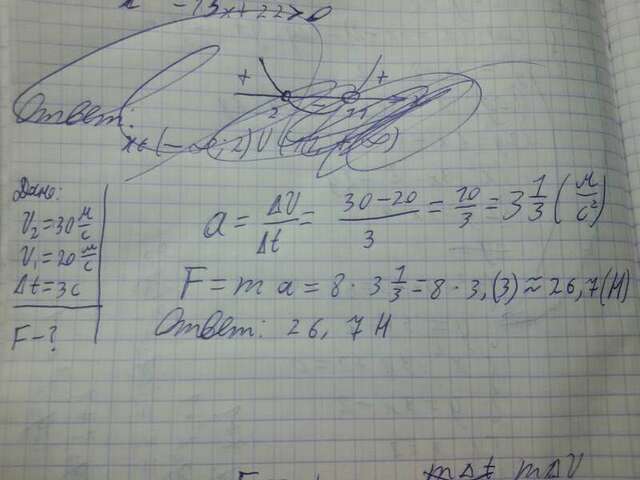 -13x+22>0
+ +
2 11 x
Ответ:
x∈(-∞;2)U(11;+∞)
Дано:
V₂=30 м/с
V₁=20 м/с
Δt=3с
F-?
a = ΔV/Δt = (30-20)/3 = 10/3 = 3 1/3 (м/с²)
F = m a = 8 · 3 1/3 = 8 · 3,(3) ≈ 26,7(Н)
Ответ: 26,7 Н
mΔt mΔV